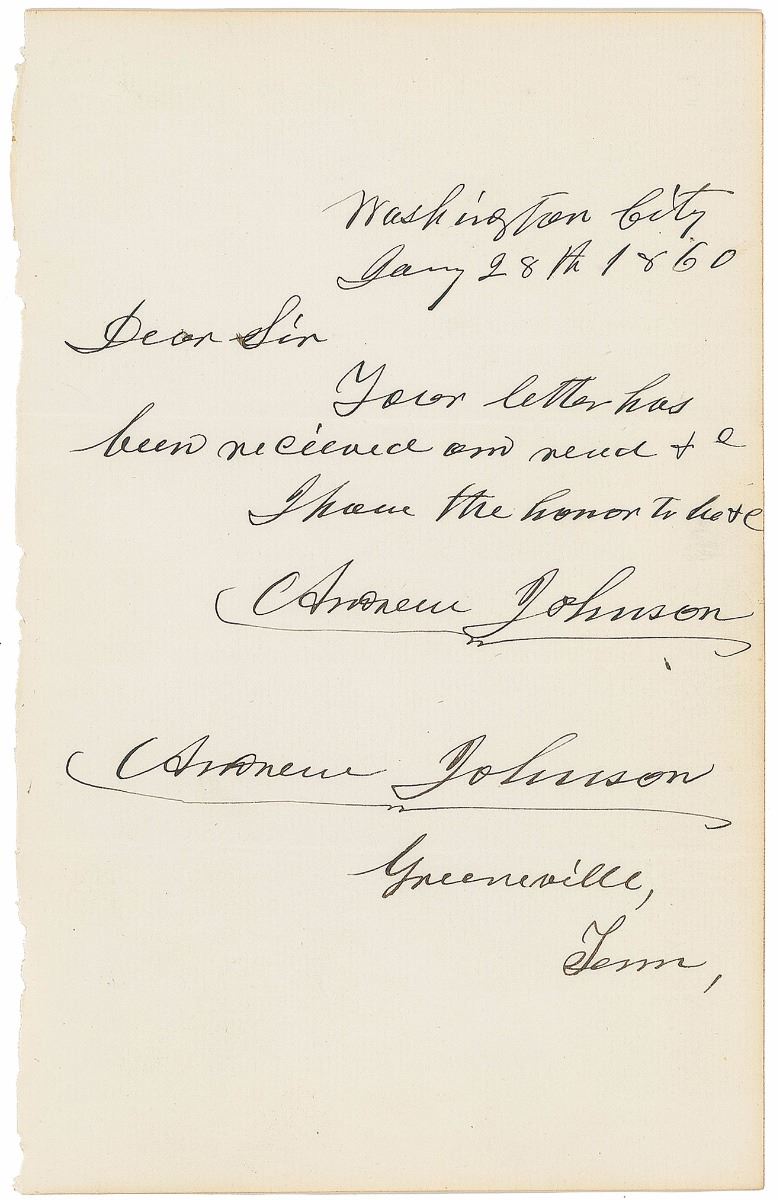 Washington City
Jany 28th 1860
Dear Sir
Your letter has
been recieved and read & c
I have the honor to be &c
Andrew Johnson
Andrew Johnson
Greeneville,
Tenn,